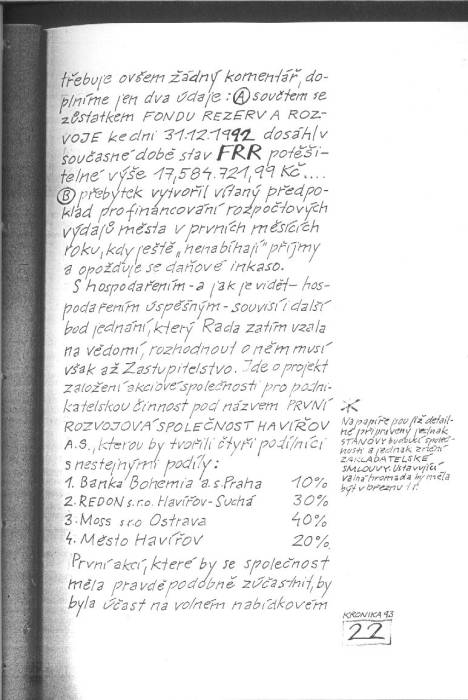 třebuje ovšem žádný komentář, do-
plníme jen dva údaje: Ⓐ součtem se
zůstatkem FONDU REZERV A ROZ-
VOJE ke dni 31.12.1992 dosáhl v
současné době stav FRR potěši-
telné výše 17,584.721,99 Kč....
Ⓑ přebytek vytvořil vítaný předpo-
klad profinancování rozpočtových
výdajů města v prvních měsících
roku, kdy ještě „nenabíhají" příjmy
a opožďuje se daňové inkaso.
S hospodařením - a jak je vidět - hos-
podařením úspěšným - souvisí i další
bod jednání, který Rada zatím vzala
na vědomí, rozhodnout o něm musí
však až Zastupitelstvo. Jde o projekt
založení akciové společnosti pro podni-
katelskou činnost pod názvem PRVNÍ
ROZVOJOVÁ SPOLEČNOST HAVÍŘOV
A.S., kterou by tvořili čtyři podílníci
s nestejnými podíly:
1. Banka Bohemia a.s. Praha 10%
2. REDON s.r.o. Havířov-Suchá 30%
3. Moss s r.o Ostrava 40%
4. Město Havířov 20%
První akcí, které by se společnost
měla pravděpodobně zúčastnit, by
byla účast na volném nabídkovém
Na papíře jsou již detail-
ně připraveny jednak
STANOVY budoucí společ-
nosti a jednak znění
ZAKLADATELSKÉ
SMLOUVY. Ustavující
valná hromada by měla
být v březnu t.r.
KRONIKA 93
22